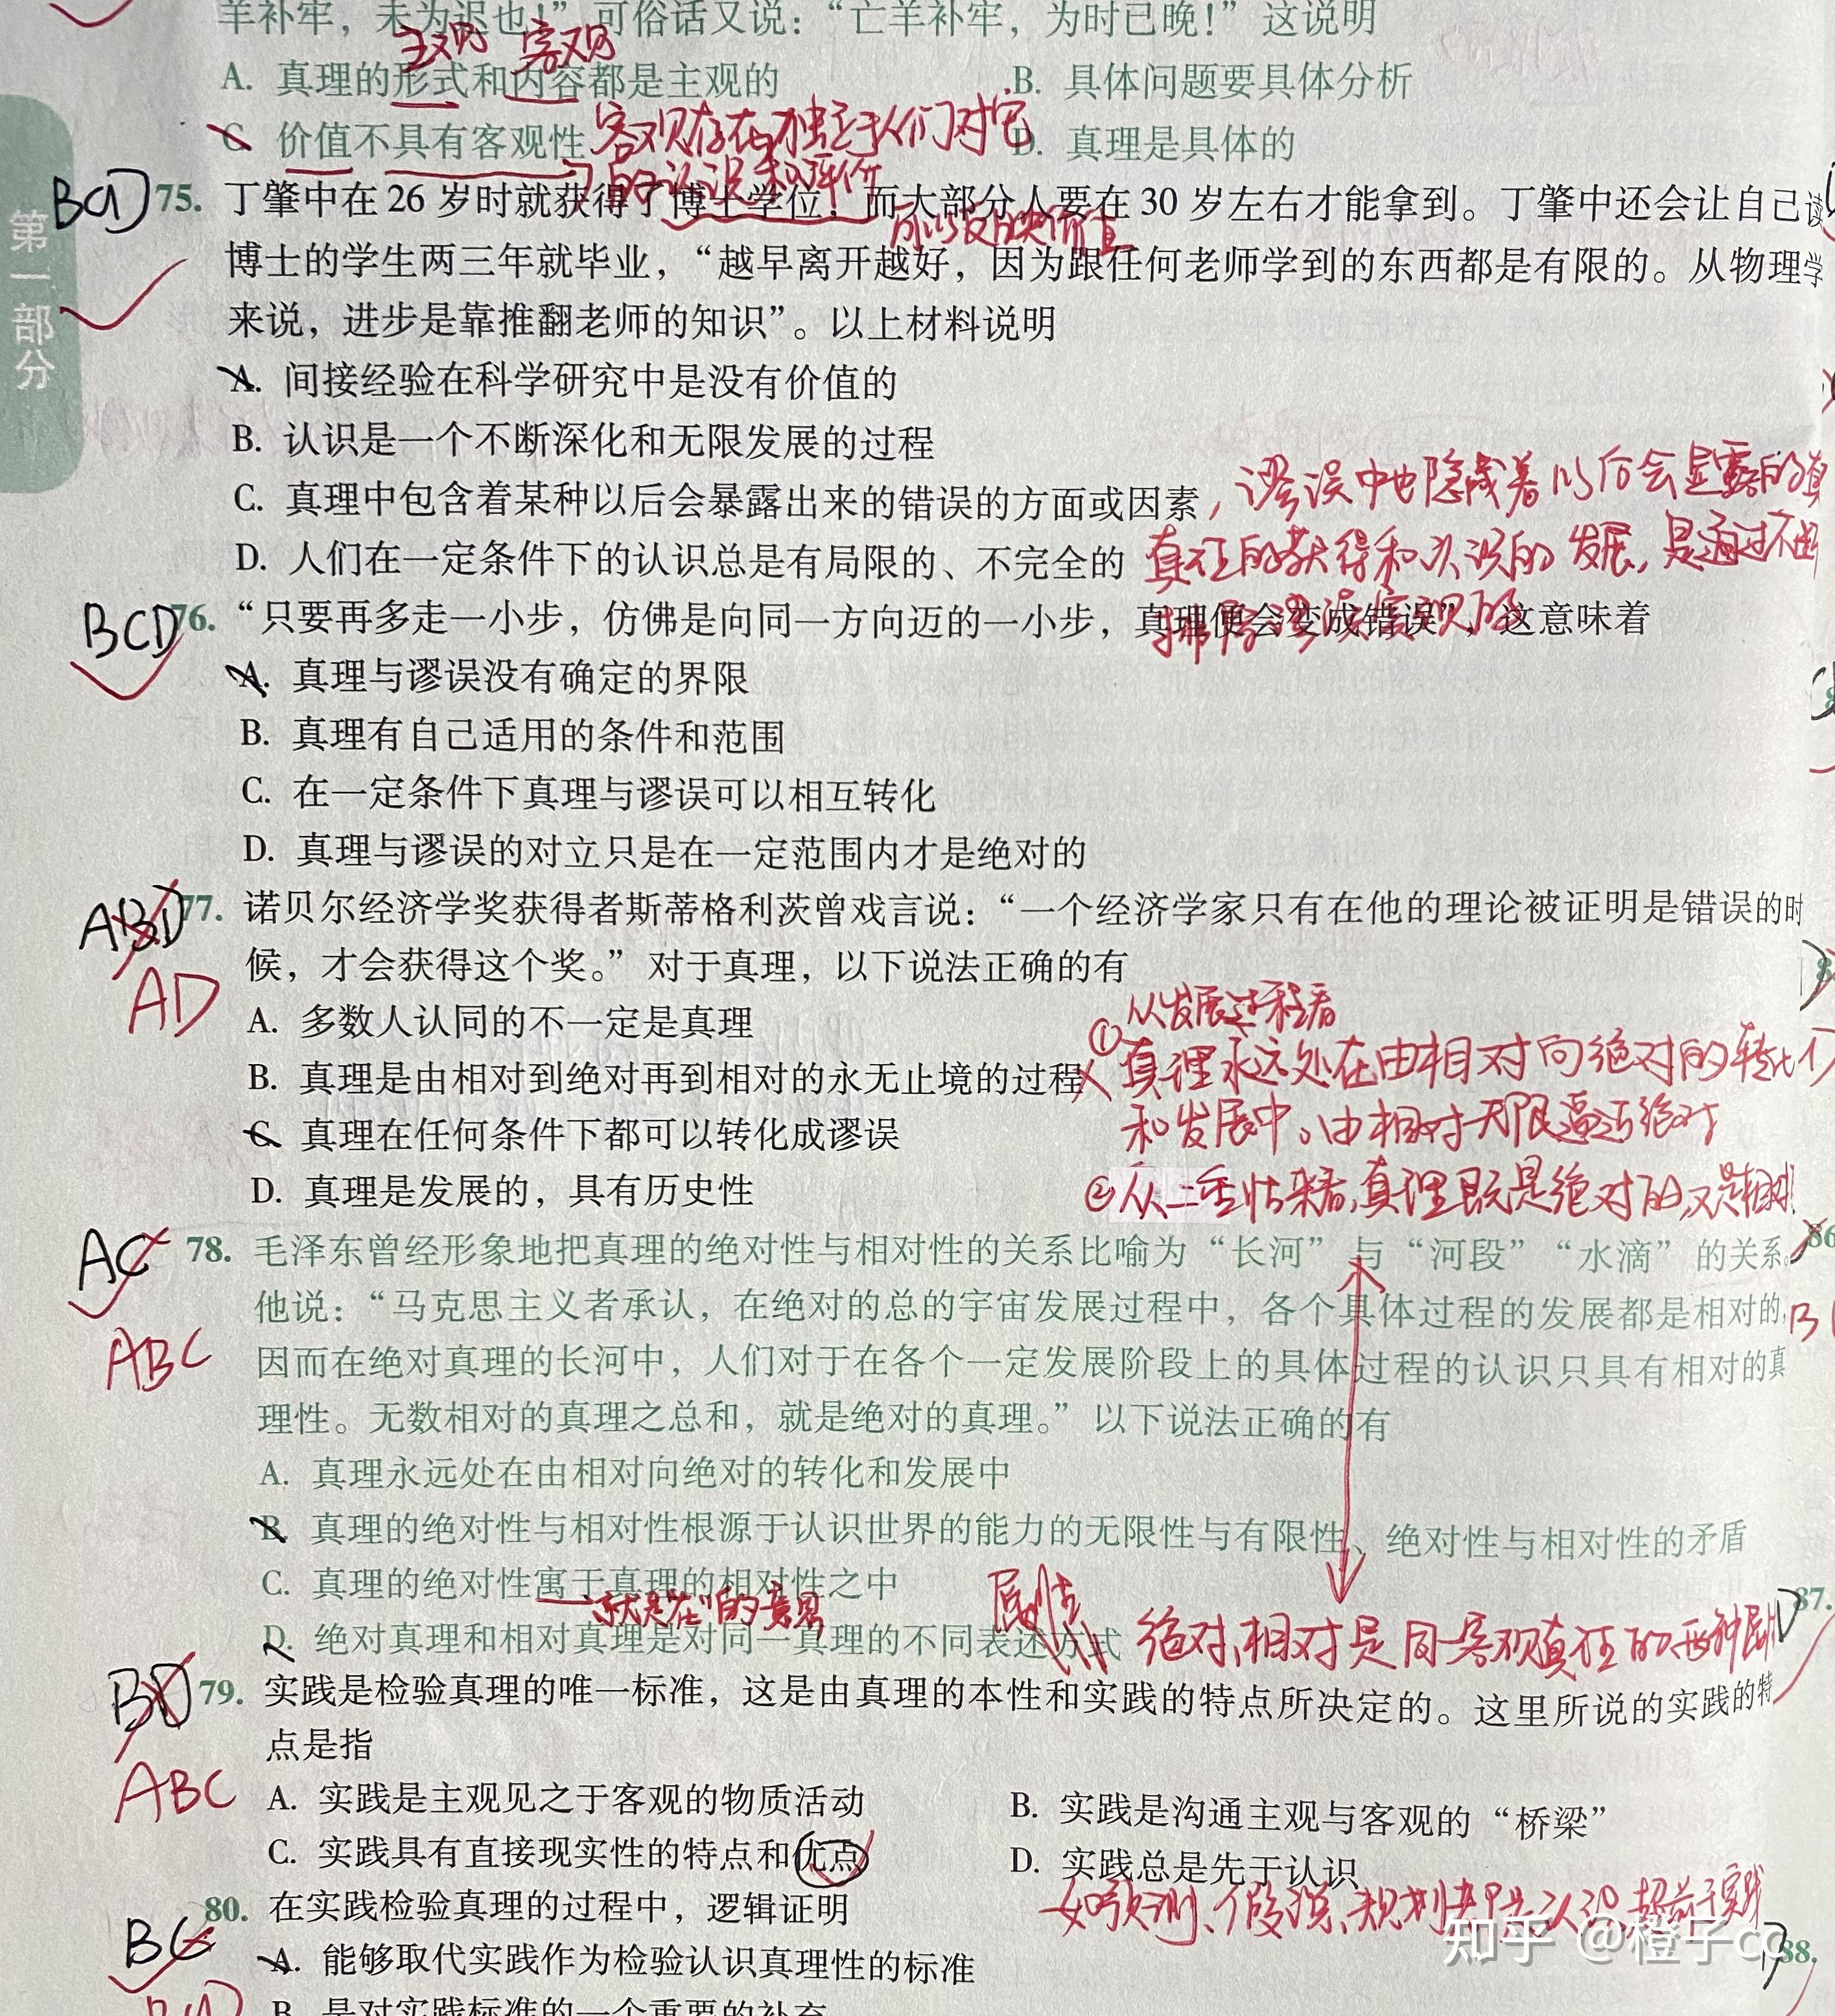 羊补牢，未为迟也！”可俗话又说：“亡羊补牢，为时已晚！”这说明
主观 客观
A. 真理的形式和内容都是主观的 B. 具体问题要具体分析
C. 价值不具有客观性 D. 真理是具体的
客观存在独立于人们对它
的认识和评价
BCD 75. 丁肇中在 26 岁时就获得了博士学位，而大部分人要在 30 岁左右才能拿到。丁肇中还会让自己读
博士的学生两三年就毕业，“越早离开越好，因为跟任何老师学到的东西都是有限的。从物理学
来说，进步是靠推翻老师的知识”。以上材料说明
A. 间接经验在科学研究中是没有价值的
B. 认识是一个不断深化和无限发展的过程
C. 真理中包含着某种以后会暴露出来的错误的方面或因素，谬误中也隐藏着以后会显露的真
D. 人们在一定条件下的认识总是有局限的、不完全的 真正的获得和认识的发展，是通过不断
BCD 76. “只要再多走一小步，仿佛是向同一方向迈的一小步，真理便会变成错误”，这意味着
A. 真理与谬误没有确定的界限
B. 真理有自己适用的条件和范围
C. 在一定条件下真理与谬误可以相互转化
D. 真理与谬误的对立只是在一定范围内才是绝对的
ABD 77. 诺贝尔经济学奖获得者斯蒂格利茨曾戏言说：“一个经济学家只有在他的理论被证明是错误的时
候，才会获得这个奖。”对于真理，以下说法正确的有
AD
A. 多数人认同的不一定是真理
从发展过程看
B. 真理是由相对到绝对再到相对的永无止境的过程 ①真理永远处在由相对向绝对的转化
和发展中。由相对无限逼近绝对
C. 真理在任何条件下都可以转化成谬误
D. 真理是发展的，具有历史性 ②从二重性来看，真理既是绝对的，又是相对
AC 78. 毛泽东曾经形象地把真理的绝对性与相对性的关系比喻为“长河”与“河段”“水滴”的关系。
他说：“马克思主义者承认，在绝对的总的宇宙发展过程中，各个具体过程的发展都是相对的，
ABC
因而在绝对真理的长河中，人们对于在各个一定发展阶段上的具体过程的认识只具有相对的真
理性。无数相对的真理之总和，就是绝对的真理。”以下说法正确的有
A. 真理永远处在由相对向绝对的转化和发展中
B. 真理的绝对性与相对性根源于认识世界的能力的无限性与有限性、绝对性与相对性的矛盾
C. 真理的绝对性寓于真理的相对性之中
就是“在”的意思 属性
D. 绝对真理和相对真理是对同一真理的不同表述方式 绝对、相对是同一客观真理的两种属
BD 79. 实践是检验真理的唯一标准，这是由真理的本性和实践的特点所决定的。这里所说的实践的特
点是指
ABC
A. 实践是主观见之于客观的物质活动 B. 实践是沟通主观与客观的“桥梁”
C. 实践具有直接现实性的特点和优点 D. 实践总是先于认识
如预测、假说、规划
BC 80. 在实践检验真理的过程中，逻辑证明
A. 能够取代实践作为检验认识真理性的标准
B. 是对实践标准的一个重要的补充
第一部分
87.
88.
知乎 @橙子cc